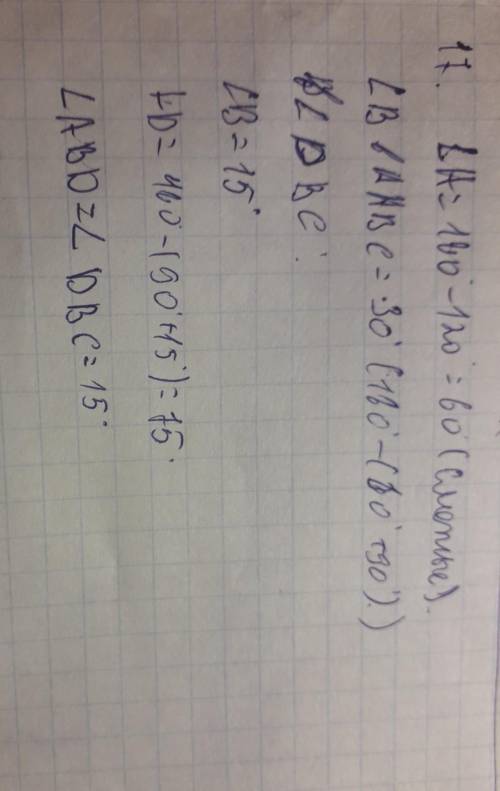 17. ∠A = 180° - 120° = 60° (смежные).
∠B ∠ABC = 30° (180° - (60° + 90°).)
∠DBC.
∠B = 15°
∠D = 180° - (90° + 15°) = 75°.
∠ABD = ∠DBC = 15°